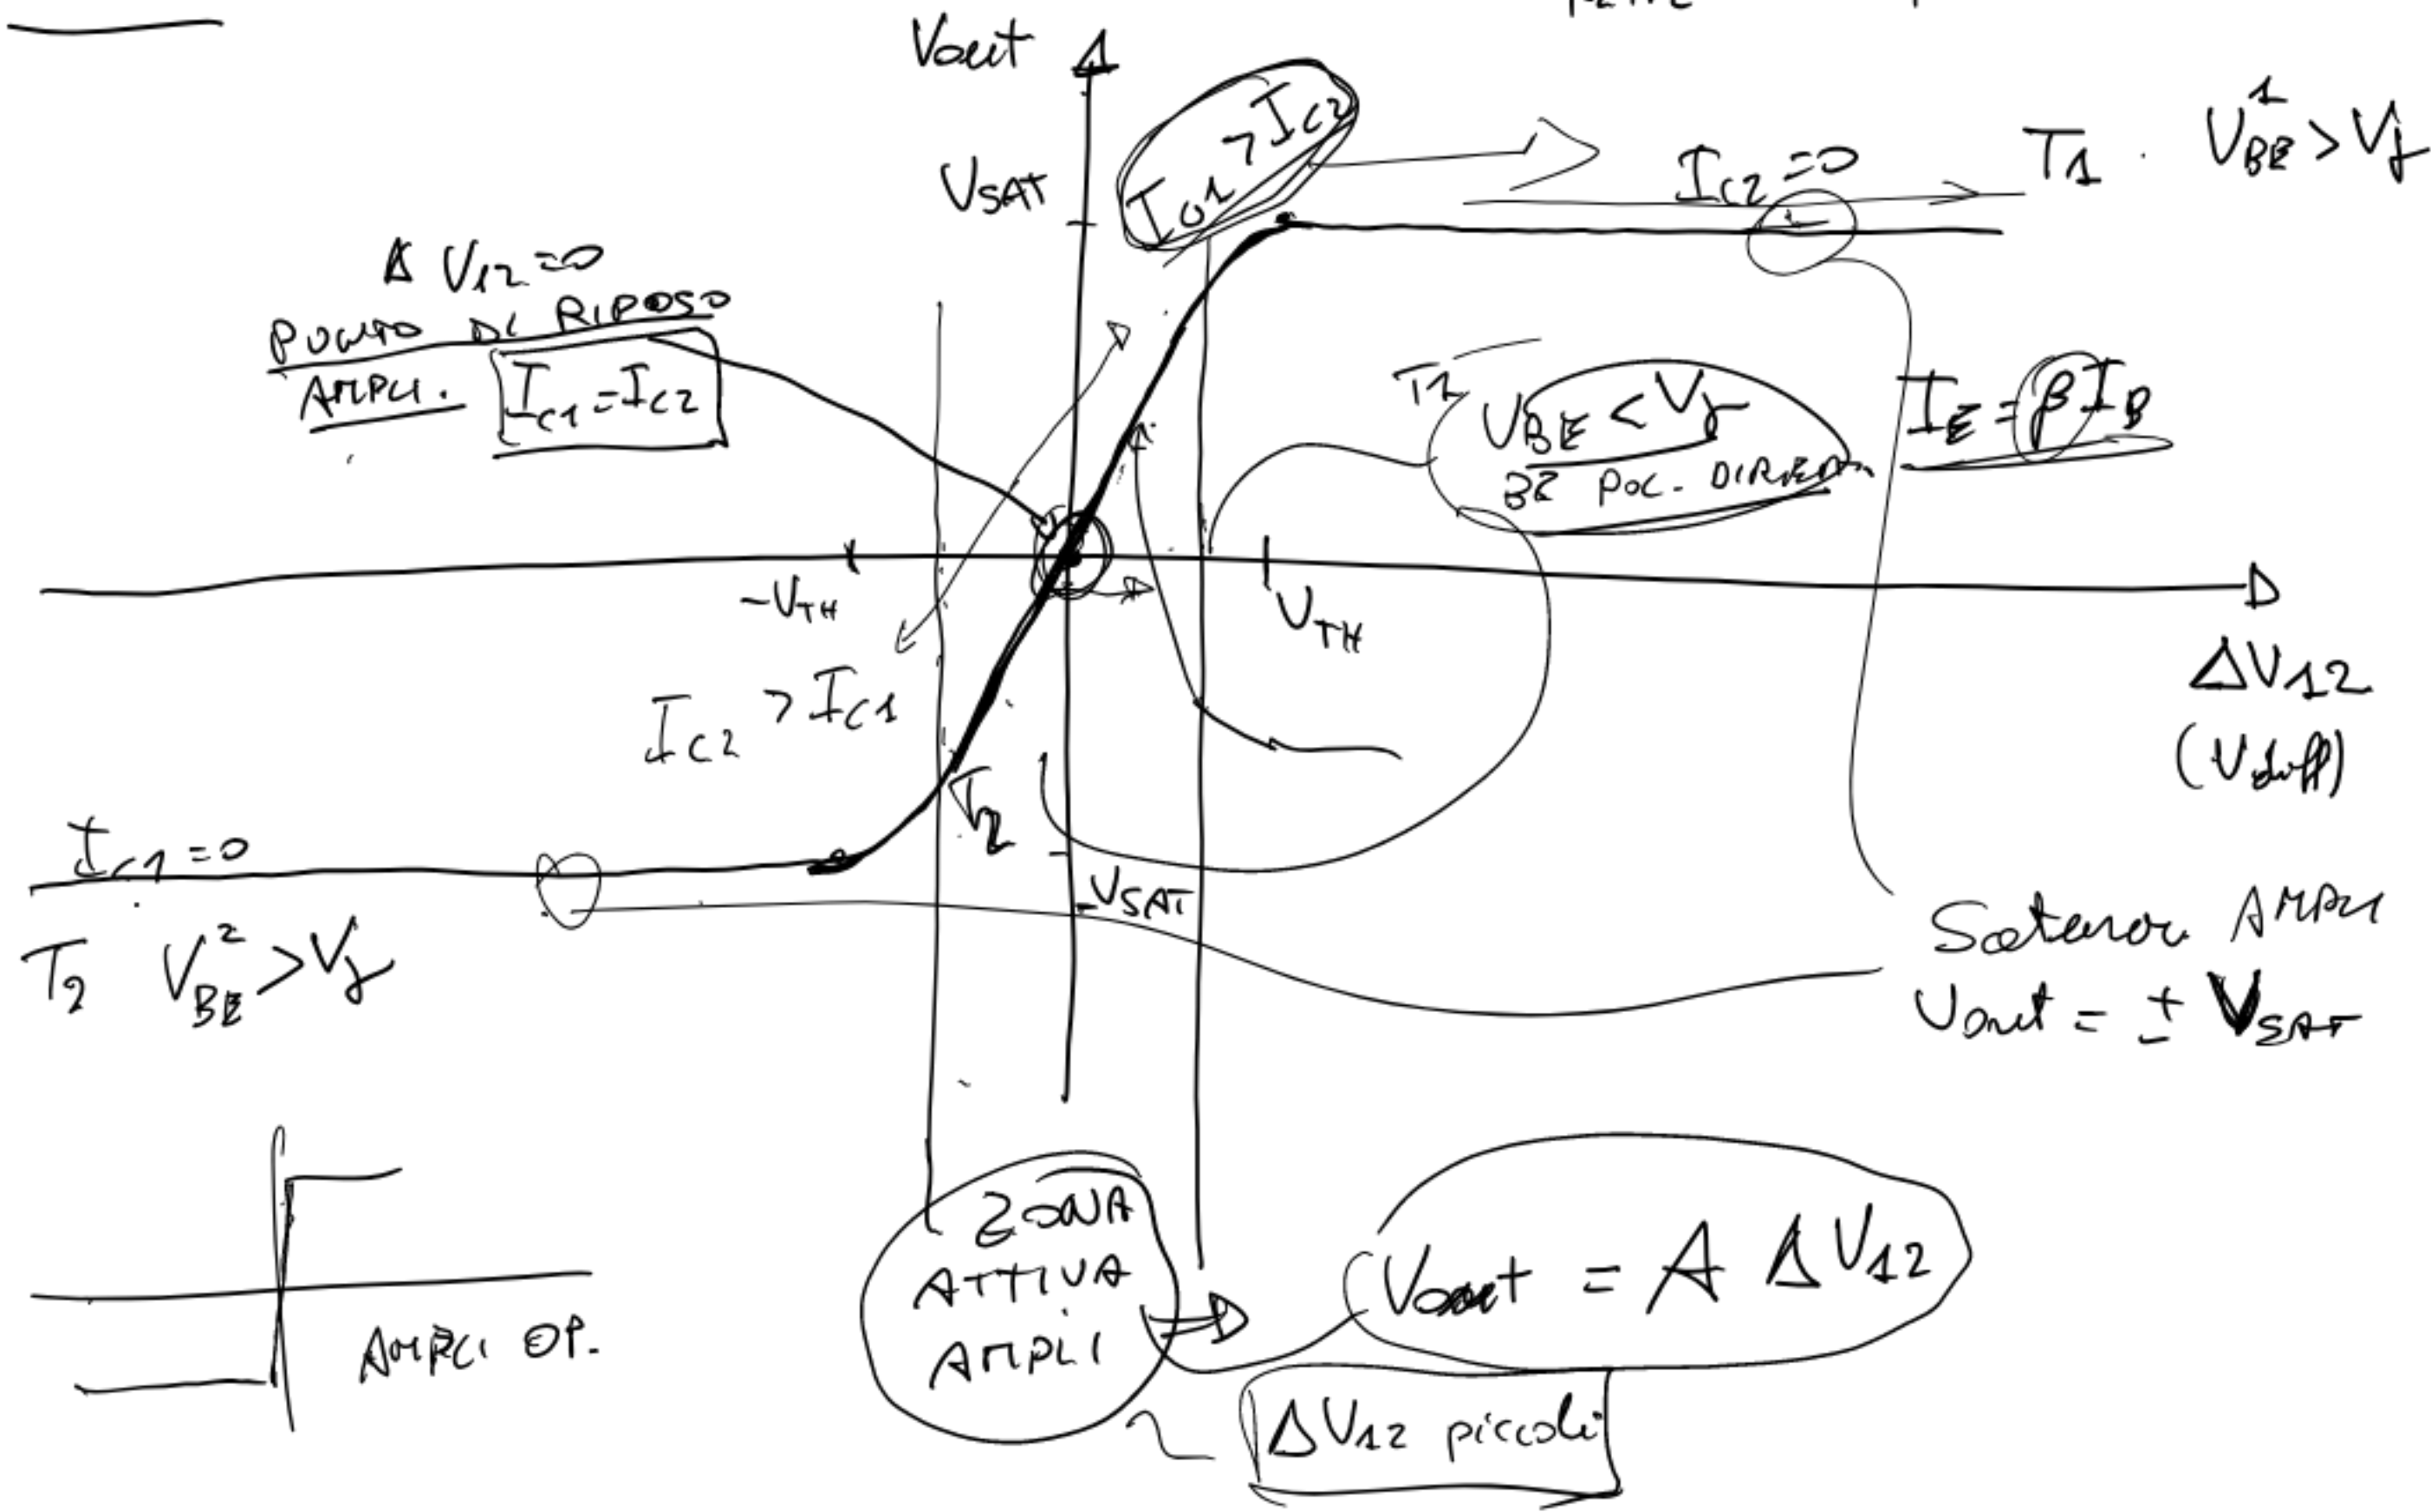 Vout
V_SAT
I_C1 > I_C2
I_C2 = 0
T1 . V_BE^1 > Vγ
ΔV12 = 0
PUNTO DI RIPOSO
AMPLI.
I_C1 = I_C2
V_BE < Vγ
BE POL. DIRETTA
I_E = β I_B
-V_TH
V_TH
ΔV12
(Vdiff)
I_C2 > I_C1
T2
I_C1 = 0
-V_SAT
T2 V_BE^2 > Vγ
AMPLI
Vout = ± V_SAT
ZONA
ATTIVA
AMPLI
Vout = A ΔV12
AMPLI OP.
ΔV12 piccoli